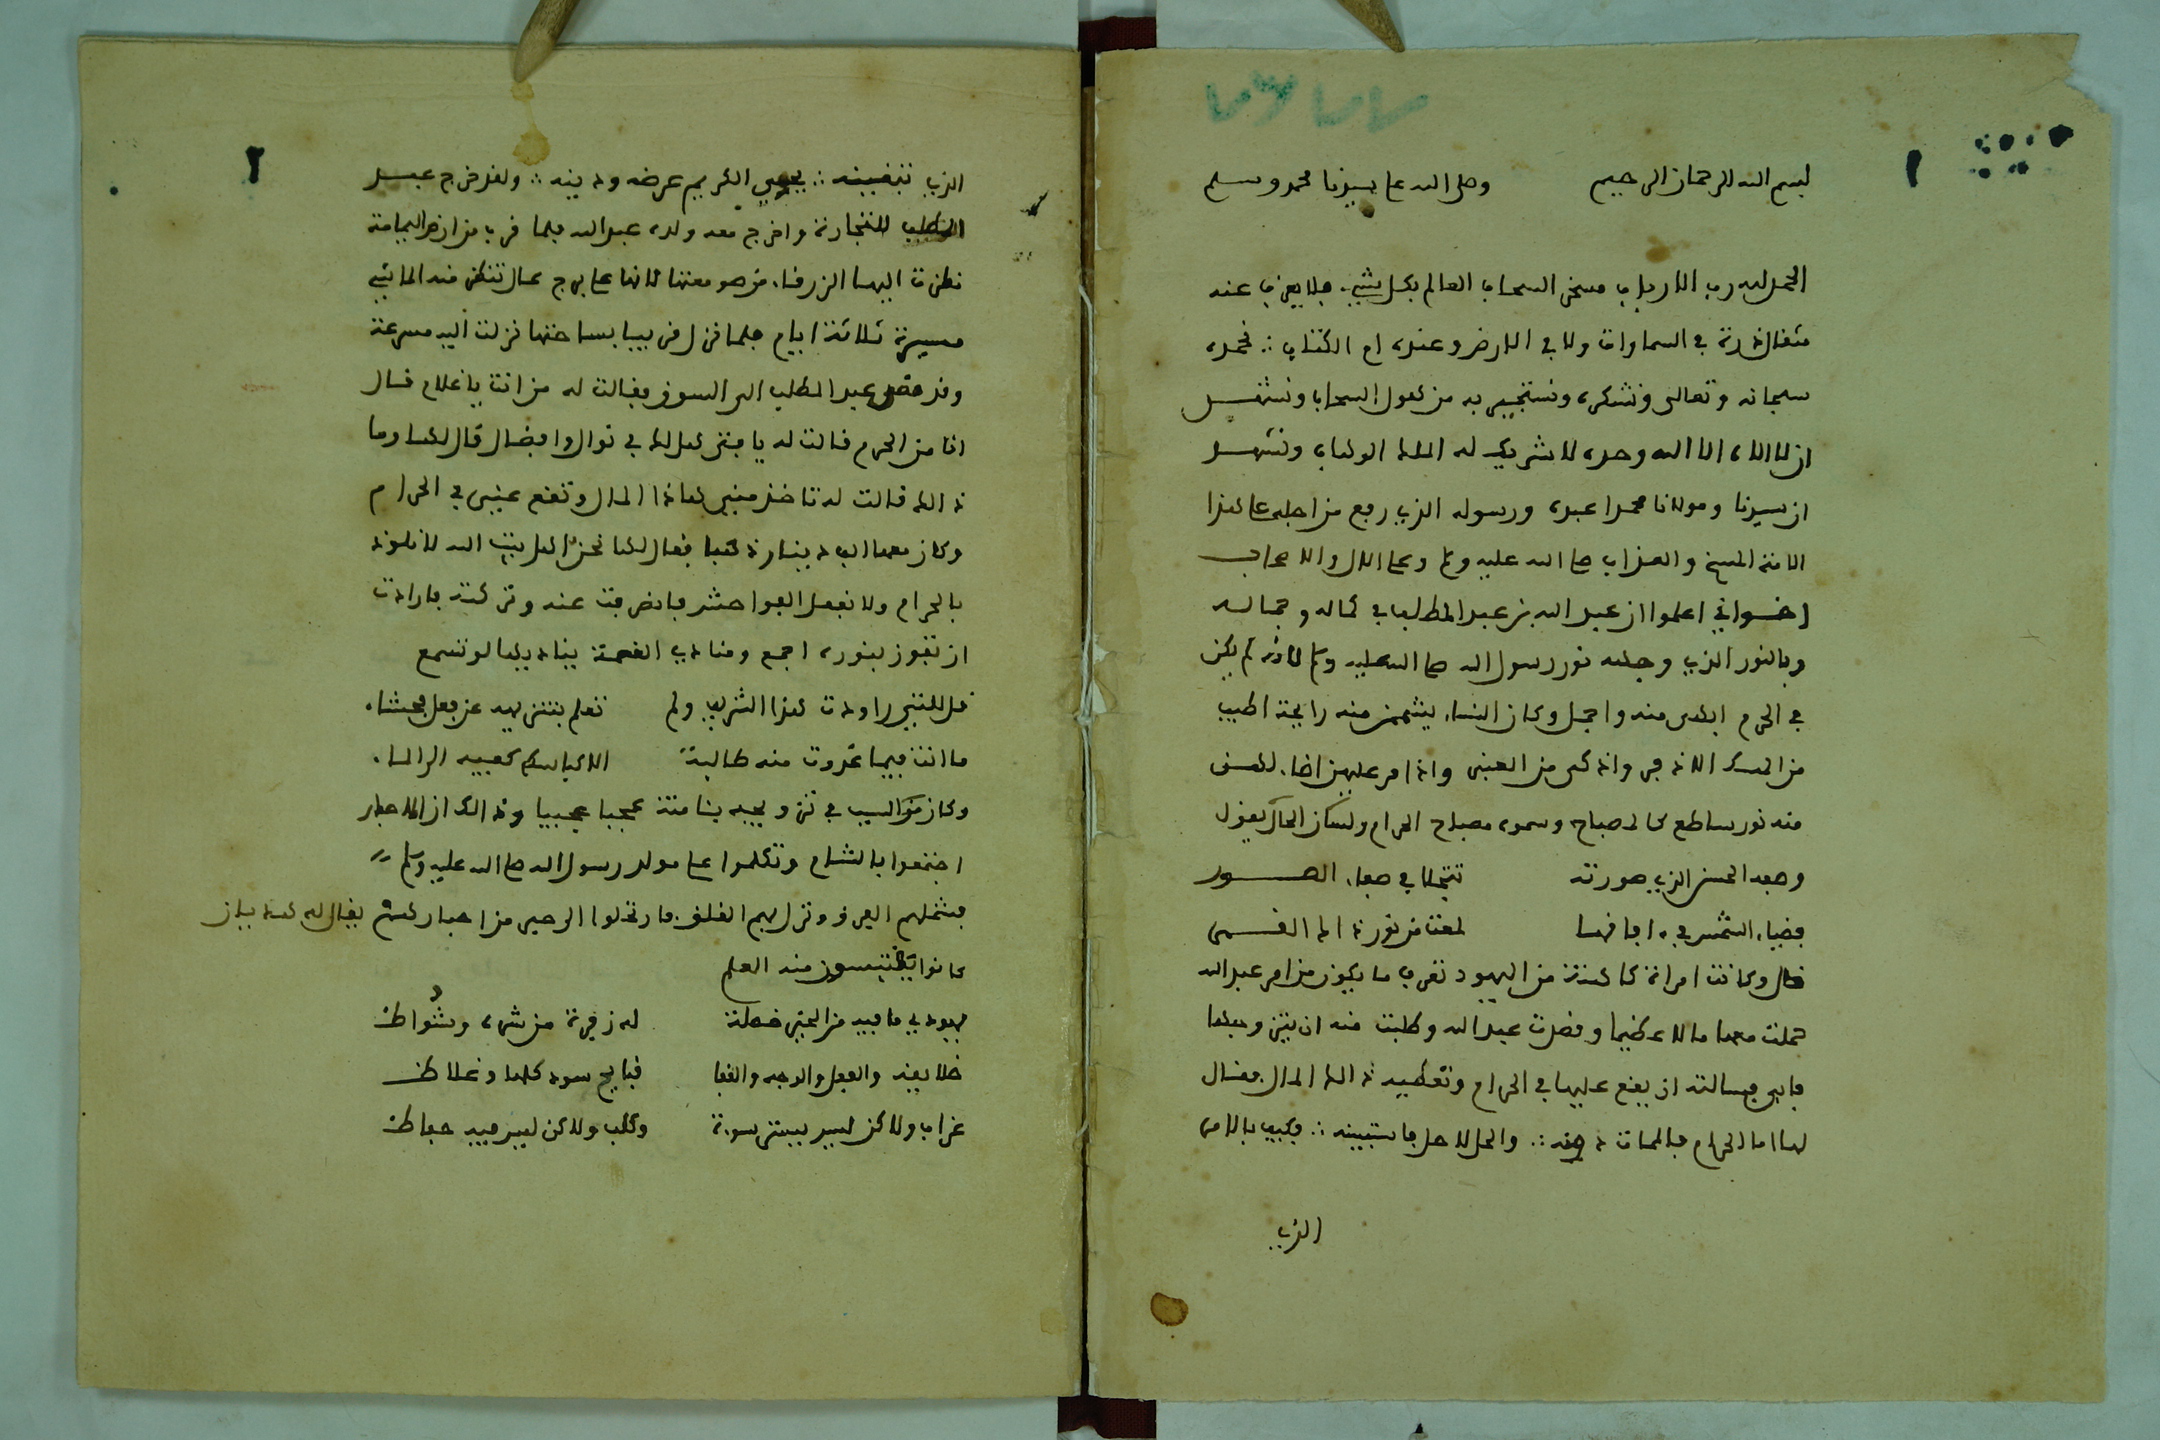 بسم الله الرحمان الرحيم وصلى الله على سيدنا محمد وسلم
الحمد لله رب الارباب مسخر السحاب العالم بكل شيء فلا يعزب عنه
مثقال ذرة في السماوات ولا في الارض وعنده ام الكتاب ∴ نحمده
سبحانه وتعالى ونشكره ونستجير به من هول الحساب ونشهد
ان لا الاه الا الله وحده لا شريك له الملك الوهاب ونشهد
ان سيدنا ومولانا محمدا عبده ورسوله الذي رفع من اجله على هذا
الامة المسخ والعذاب صلى الله عليه وسلم وعلى الال والاصحاب
إخواني اعلموا ان عبد الله بن عبد المطلب في كماله وجماله
وبالنور الذي وجهه نور رسول الله صلى الله عليه وسلم لانه لم يكن
في الحرم ابهى منه واجمل وكان النساء يشممن منه رايحة اطيب
من المسك الاذفر واذكى من العنبر واذا مر عليهن اضاء لهن
منه نور ساطع كالمصباح وسموه مصباح الحرام ولسان الحال يقول
وجه الحسن الذي صورته تتجلا في صفاء الصور
فضياء الشمس في افافها لمعة من نور ذاك القمر
قال وكانت امراة كاهنة من اليهود تعرف ما يكون من امر عبد الله
حملت معها مالا عظيما وقصدت عبد الله وطلبت منه ان يتزوجها
فابى فسالته ان يقع عليها في الحرام وتعطيه ذالك المال فقال
لها اما الحرام فالممات دونه ∴ والحل لا حل فاستبينه ∴ فكيف بالامر
الذي
الذي تبغينه ∴ يحمي الكريم عرضه ودينه ∴ ولقد خرج عبد
المطلب للتجارة واخرج معه ولده عبد الله فلما قرب من ارض اليمامة
نظرت اليهما الزرقاء من حومعتها لانها على برج عال تنظر منه الماشي
مسيرة ثلاثة ايام فلما نزل قريبا بساحتها نزلت اليه مسرعة
وقد مضى عبد المطلب الى السوق فقالت له من انت يا غلام قال
انا من الحرم قالت له يا فتى هل لك في نوال وافضال قال لها وما
ذالك قالت له تاخذ مني هاذا المال وتقع عني في الحرام
وكان معها الف دينار ذهبا فقال لها نحن اهل بيت الله لا نلوذ
بالحرام ولا نفعل الفواحش فانصرفت عنه وتركته فارادت
ان تفوز بنوره اجمع ومنادي العصمة يناديها لو تسمع
قل للتي راودت هذا الشريف ولم تعلم بتنزيهه عن فعل فحشاء
ما انت فيما غدوت منه طالبة الا كباسط كفيه الى الماء
وكان من السبب في تزويجه بئامنة عجبا عجيبا وذالك ان الاحبار
اجتمعوا بالشام وتكلموا على مولد رسول الله صلى الله عليه وسلم
فشملهم الفرق ونزل بهم القلق فارتحلوا الى حبر من احبارهم يقال له
كانوا يقتبسون منه العلم
يهودي ما فيه من الخير خصلة له زفرة من شره وشواظ
خلايقه والفعل والوجه والقفا قبايح سود كلها وغلاظ
غراب ولاكن ليس يستر سوءة وكلب ولاكن ليس فيه حفاظ